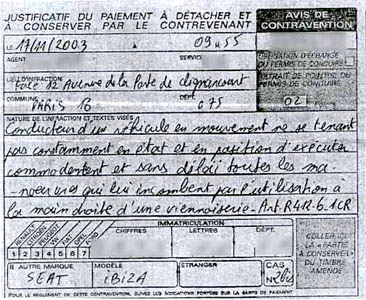 JUSTIFICATIF DU PAIEMENT À DÉTACHER ET
À CONSERVER PAR LE CONTREVENANT
AVIS DE
CONTRAVENTION
LE 17/11/2003 À 09 H 55
AGENT SERVICE
LIEU D'INFRACTION
Face 12 Avenue de la Porte de Clignancourt
COMMUNE PARIS 18 DÉPT. 075
OBLIGATION D'ÉCHANGE
DU PERMIS DE CONDUIRE
RETRAIT DE POINTS DU
PERMIS DE CONDUIRE
02
NATURE DE L'INFRACTION ET TEXTES VISÉS
Conducteur d'un véhicule en mouvement ne se tenant
pas constamment en état et en position d'exécuter
commodément et sans délai toutes les ma
noeuvres qui lui incombent par l'utilisation à
la main droite d'une viennoiserie - Art. R 412-6 1 CR
IMMATRICULATION
CHIFFRES LETTRES DÉPT.
1 2 3 4 5 6 7 8
AUTRE MARQUE MODÈLE ÉTRANGER CAS
SEAT iBIZA N° 2 bis
COLLER ICI
LA « PARTIE
À CONSERVER »
DU TIMBRE
AMENDE
POUR LE RÈGLEMENT DE CETTE CONTRAVENTION, SUIVEZ LES INDICATIONS PORTÉES SUR LA CARTE DE PAIEMENT